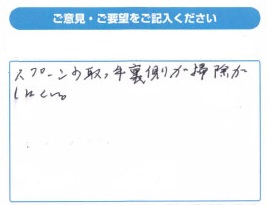 ご意見・ご要望をご記入ください
スプーンの取っ手裏側が掃除が
しにくい。